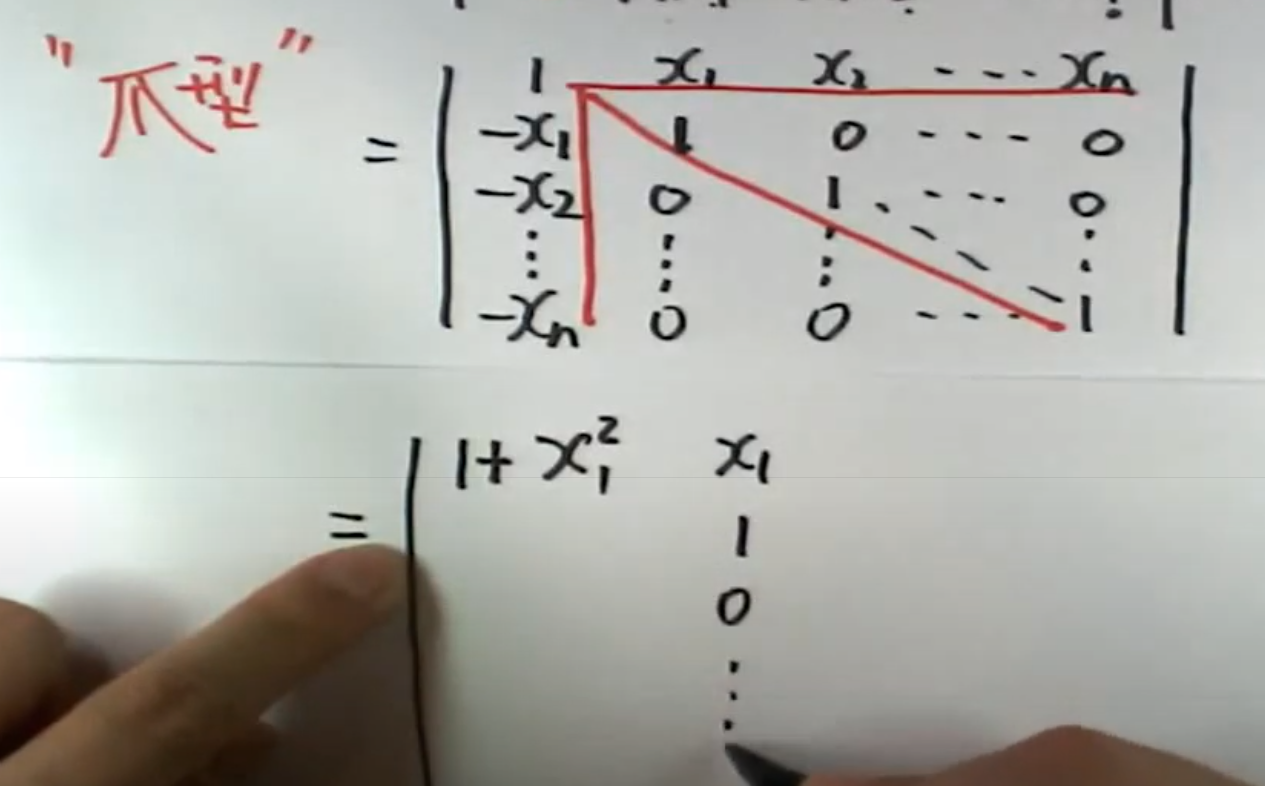 "爪型"
1 x₁ x₂ --- xₙ
= -x₁ 1 0 --- 0
-x₂ 0 1 --- 0
⋮ ⋮ ⋮ ⋮
-xₙ 0 0 --- 1
1+x₁² x₁
= 1
0
⋮